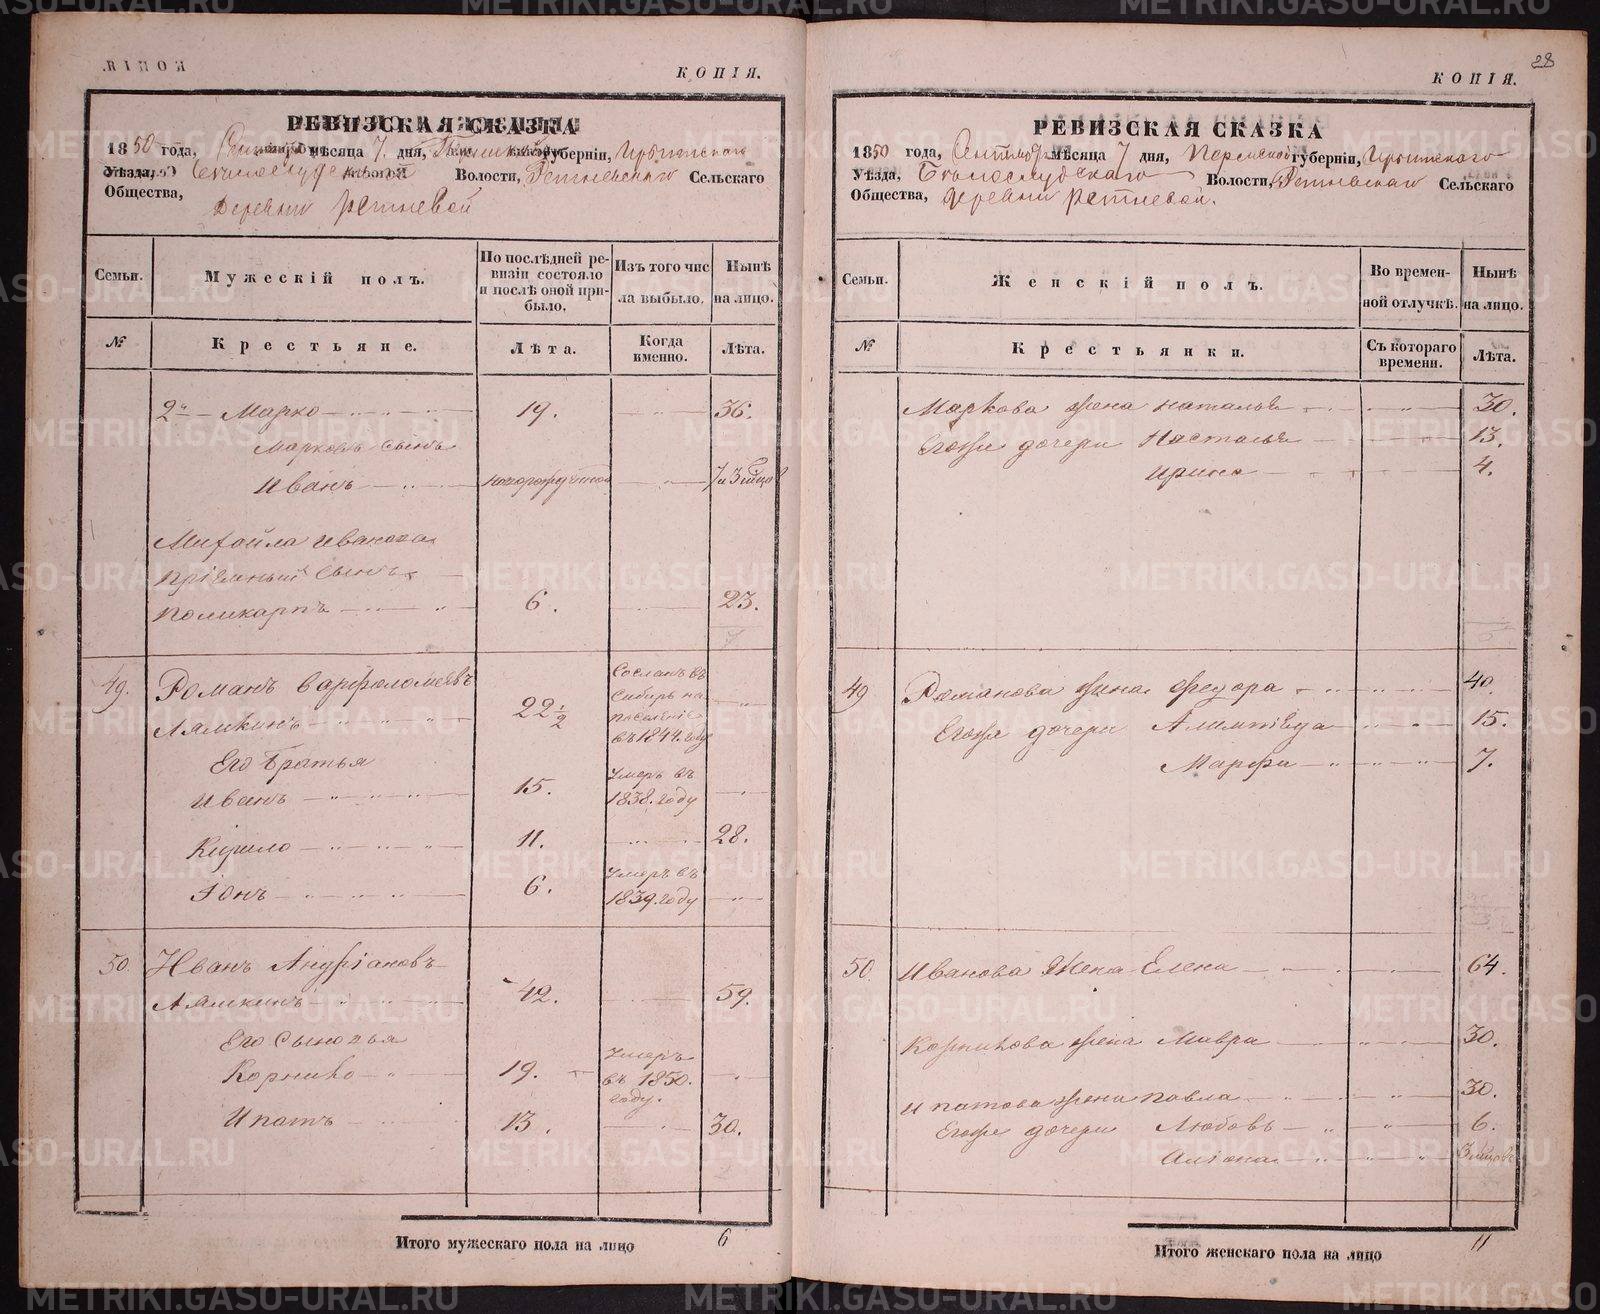 КОПІЯ.
КОПІЯ.
РЕВИЗСКАЯ СКАЗКА
1850 года, мѣсяца 7 дня, губерніи, Ирбитскаго
Уѣзда, Волости, Ретневскаго Сельскаго
Общества, Деревни Ретневой
Семьи. Мужескій полъ. По послѣдней ревизіи состояло и послѣ оной прибыло. Изъ того числа выбыло. Нынѣ на лицо.
№ Крестьяне. Лѣта. Когда именно. Лѣта.
2й Марко 19. 36.
Марковъ сынъ
Иванъ новорожденной
Михайла Иванова
пріемный сынъ
Поликарпъ 6. 23.
7
49. Романъ Варфоломеевъ
Лямкинъ 22½ Сосланъ въ Сибирь на поселеніе въ 1844. году
Его братья
Иванъ 15. Умеръ въ 1838. году
Кирило 11. 28.
Іонъ 6. Умеръ въ 1839. году
50. Иванъ Андріановъ
Лямкинъ 42. 59.
Его сыновья
Корнило 19. Умеръ въ 1850. году.
Ипатъ 13. 30.
Итого мужескаго пола на лицо 6
28
КОПІЯ.
РЕВИЗСКАЯ СКАЗКА
1850 года, мѣсяца 7 дня, Пермской губерніи, Ирбитскаго
Уѣзда, Белослудскаго Волости, Ретневскаго Сельскаго
Общества, Деревни Ретневой.
Семьи. Женскій полъ. Во временной отлучкѣ. Нынѣ на лицо.
№ Крестьянки. Съ котораго времени. Лѣта.
Маркова жена Наталья 30.
Егоже дочери Настасья 13.
Ирина 4.
49 Романова жена Федора 40.
Егоже дочери 15.
Марфа 7.
50 Иванова жена Елена 64.
Корнилова жена Мавра 30.
Ипатова жена Павла 30.
Егоже дочери Любовь 6.
Аліона
Итого женскаго пола на лицо 11
METRIKI.GASO-URAL.RU